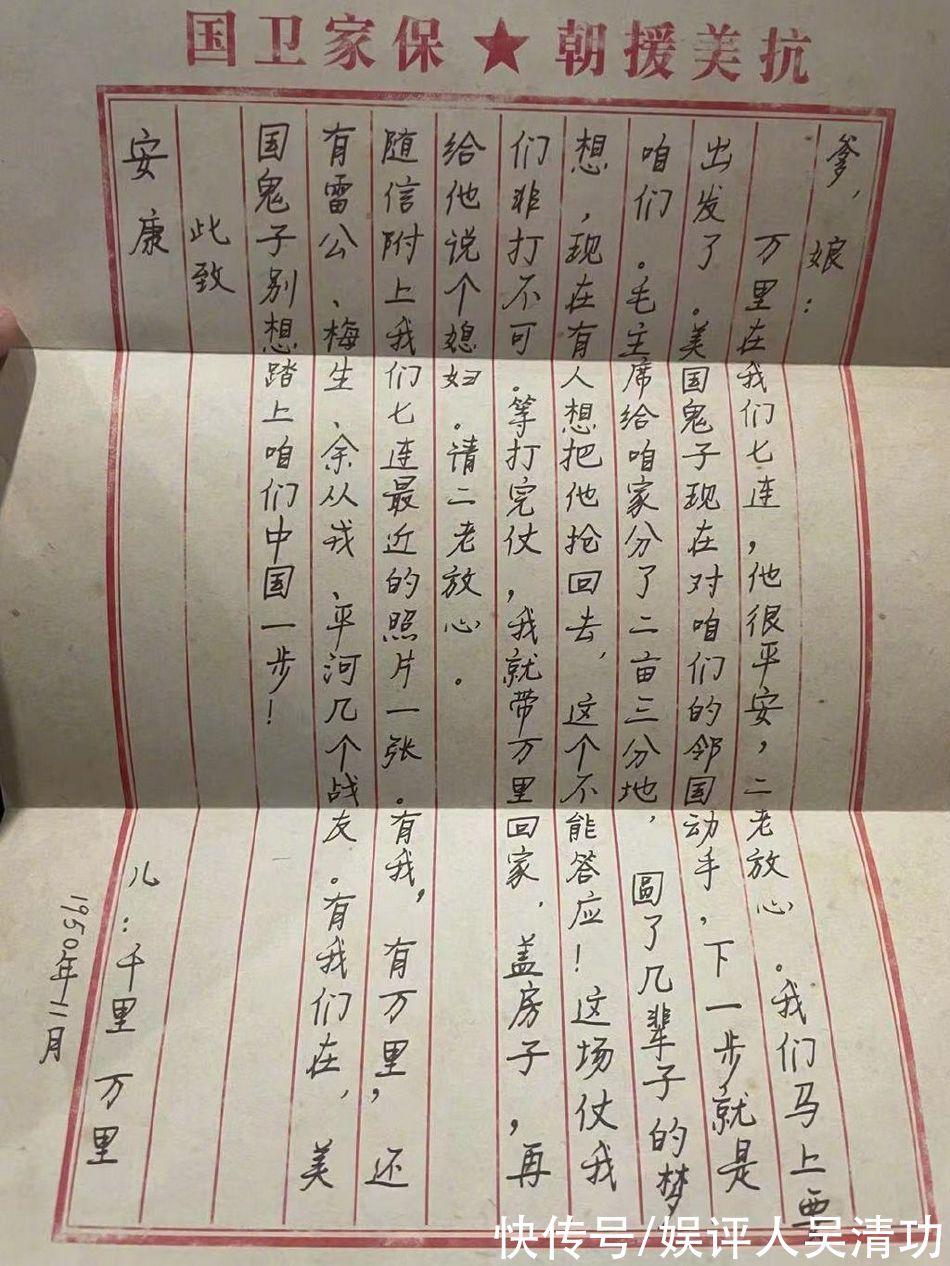 抗美援朝★保家卫国
爹，娘：
万里在我们七连，他很平安，二老放心。我们马上要
出发了。美国鬼子现在对咱们的邻国动手，下一步就是
咱们。毛主席给咱家分了二亩三分地，圆了几辈子的梦
想，现在有人想把他抢回去，这个不能答应！这场仗我
们非打不可。等打完仗，我就带万里回家，盖房子，再
给他说个媳妇。请二老放心。
随信附上我们七连最近的照片一张。有我，有万里，还
有雷公、梅生、余从戎、平河几个战友。有我们在，美
国鬼子别想踏上咱们中国一步！
此致
安康
儿：千里 万里
1950年11月
快传号/娱评人吴清功